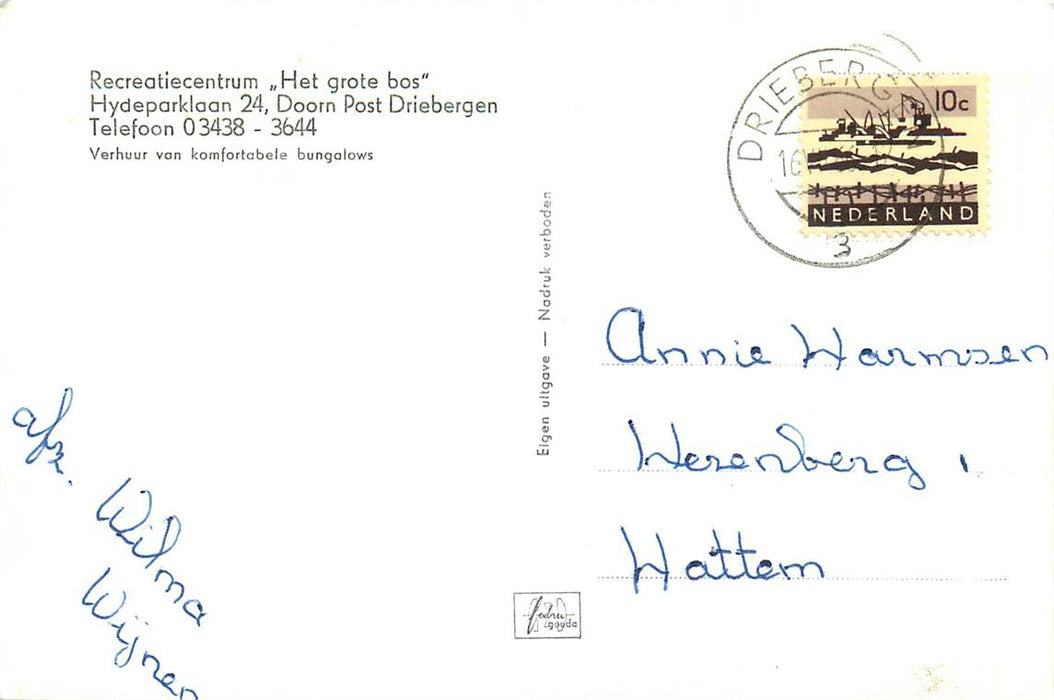 Recreatiecentrum „Het grote bos"
Hydeparklaan 24, Doorn Post Driebergen
Telefoon 03438 - 3644
Verhuur van komfortabele bungalows
DRIEBERG
3
10c
NEDERLAND
Eigen uitgave — Nadruk verboden
Annie Harmsen
Herenberg 1
Hattem
afz. Wilma
Wijnen